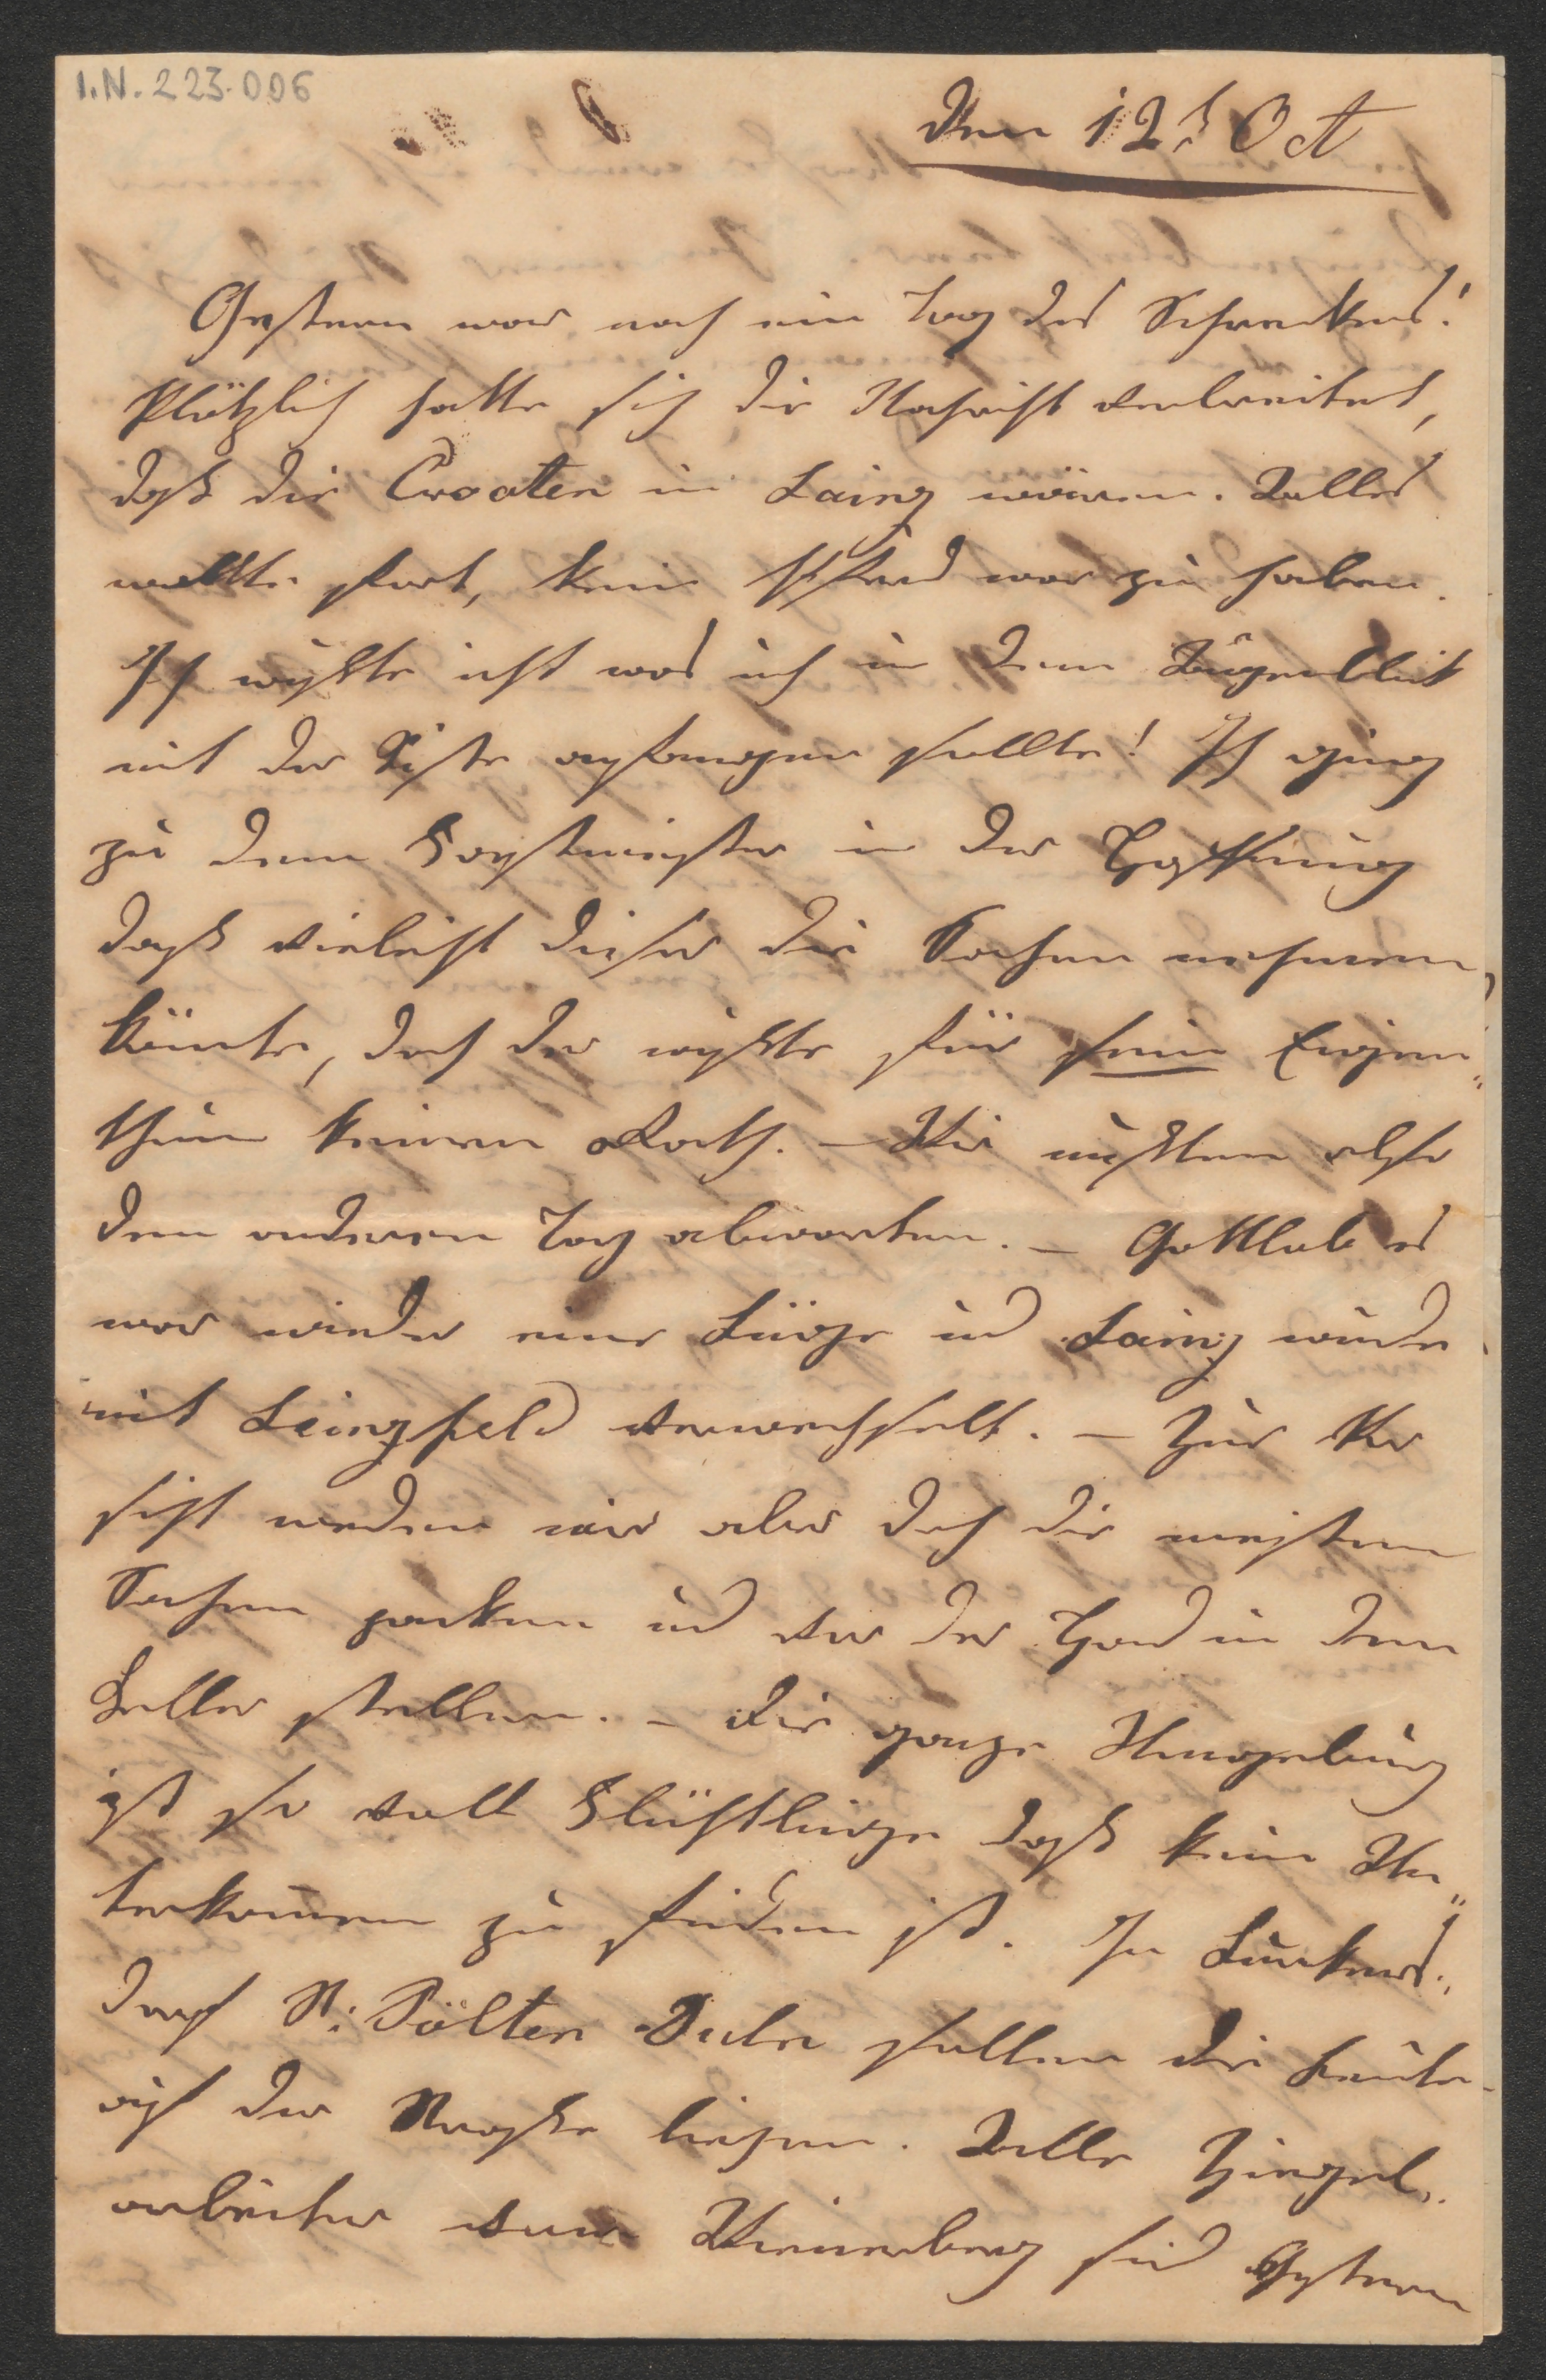 I.N. 223.006
Den 12t Oct
Gestern war noch ein Tag des Schreckens!
Plötzlich hatte sich die Nachricht verbreitet,
daß die Croaten in Lainz wären. Alles
wollte fort, kein Pferd war zu haben.
Ich wußte nicht was ich in dem Augenblick
mit der Kiste anfangen sollte! Ich ging
zu dem Forstmeister in der Hoffnung
daß vieleicht dieser die Sachen nehmen
könnte, doch der wußte für sein Eigen„
thum keinen Rath. – Wir mußten also
den anderen Tag abwarten. – Gottlob es
war wieder eine Lüge und Lainz wurde
mit Leinzfeld verwechselt. – Zur Vor
sicht werden wir aber doch die meisten
Sachen packen und vor der Hand in den
Keller stellen. – Die ganze Umgebung
ist so voll Flüchtlinge daß kein Un„
terkom̅en zu finden ist. In Purkers„
dorf St: Pölten Tuln sollen die Leute
auf der Straße liegen. Alle Ziegel„
arbeiter vom Wienerberg sind Gestern